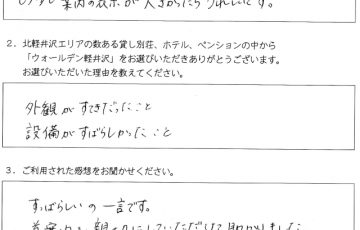 案内の表示が大きかったらうれしいです。
2．北軽井沢エリアの数ある貸し別荘、ホテル、ペンションの中から
「ウォールデン軽井沢」をお選びいただきありがとうございます。
お選びいただいた理由を教えてください。
外観がすてきだったこと
設備がすばらしかったこと
3．ご利用された感想をお聞かせください。
すばらしいの一言です。